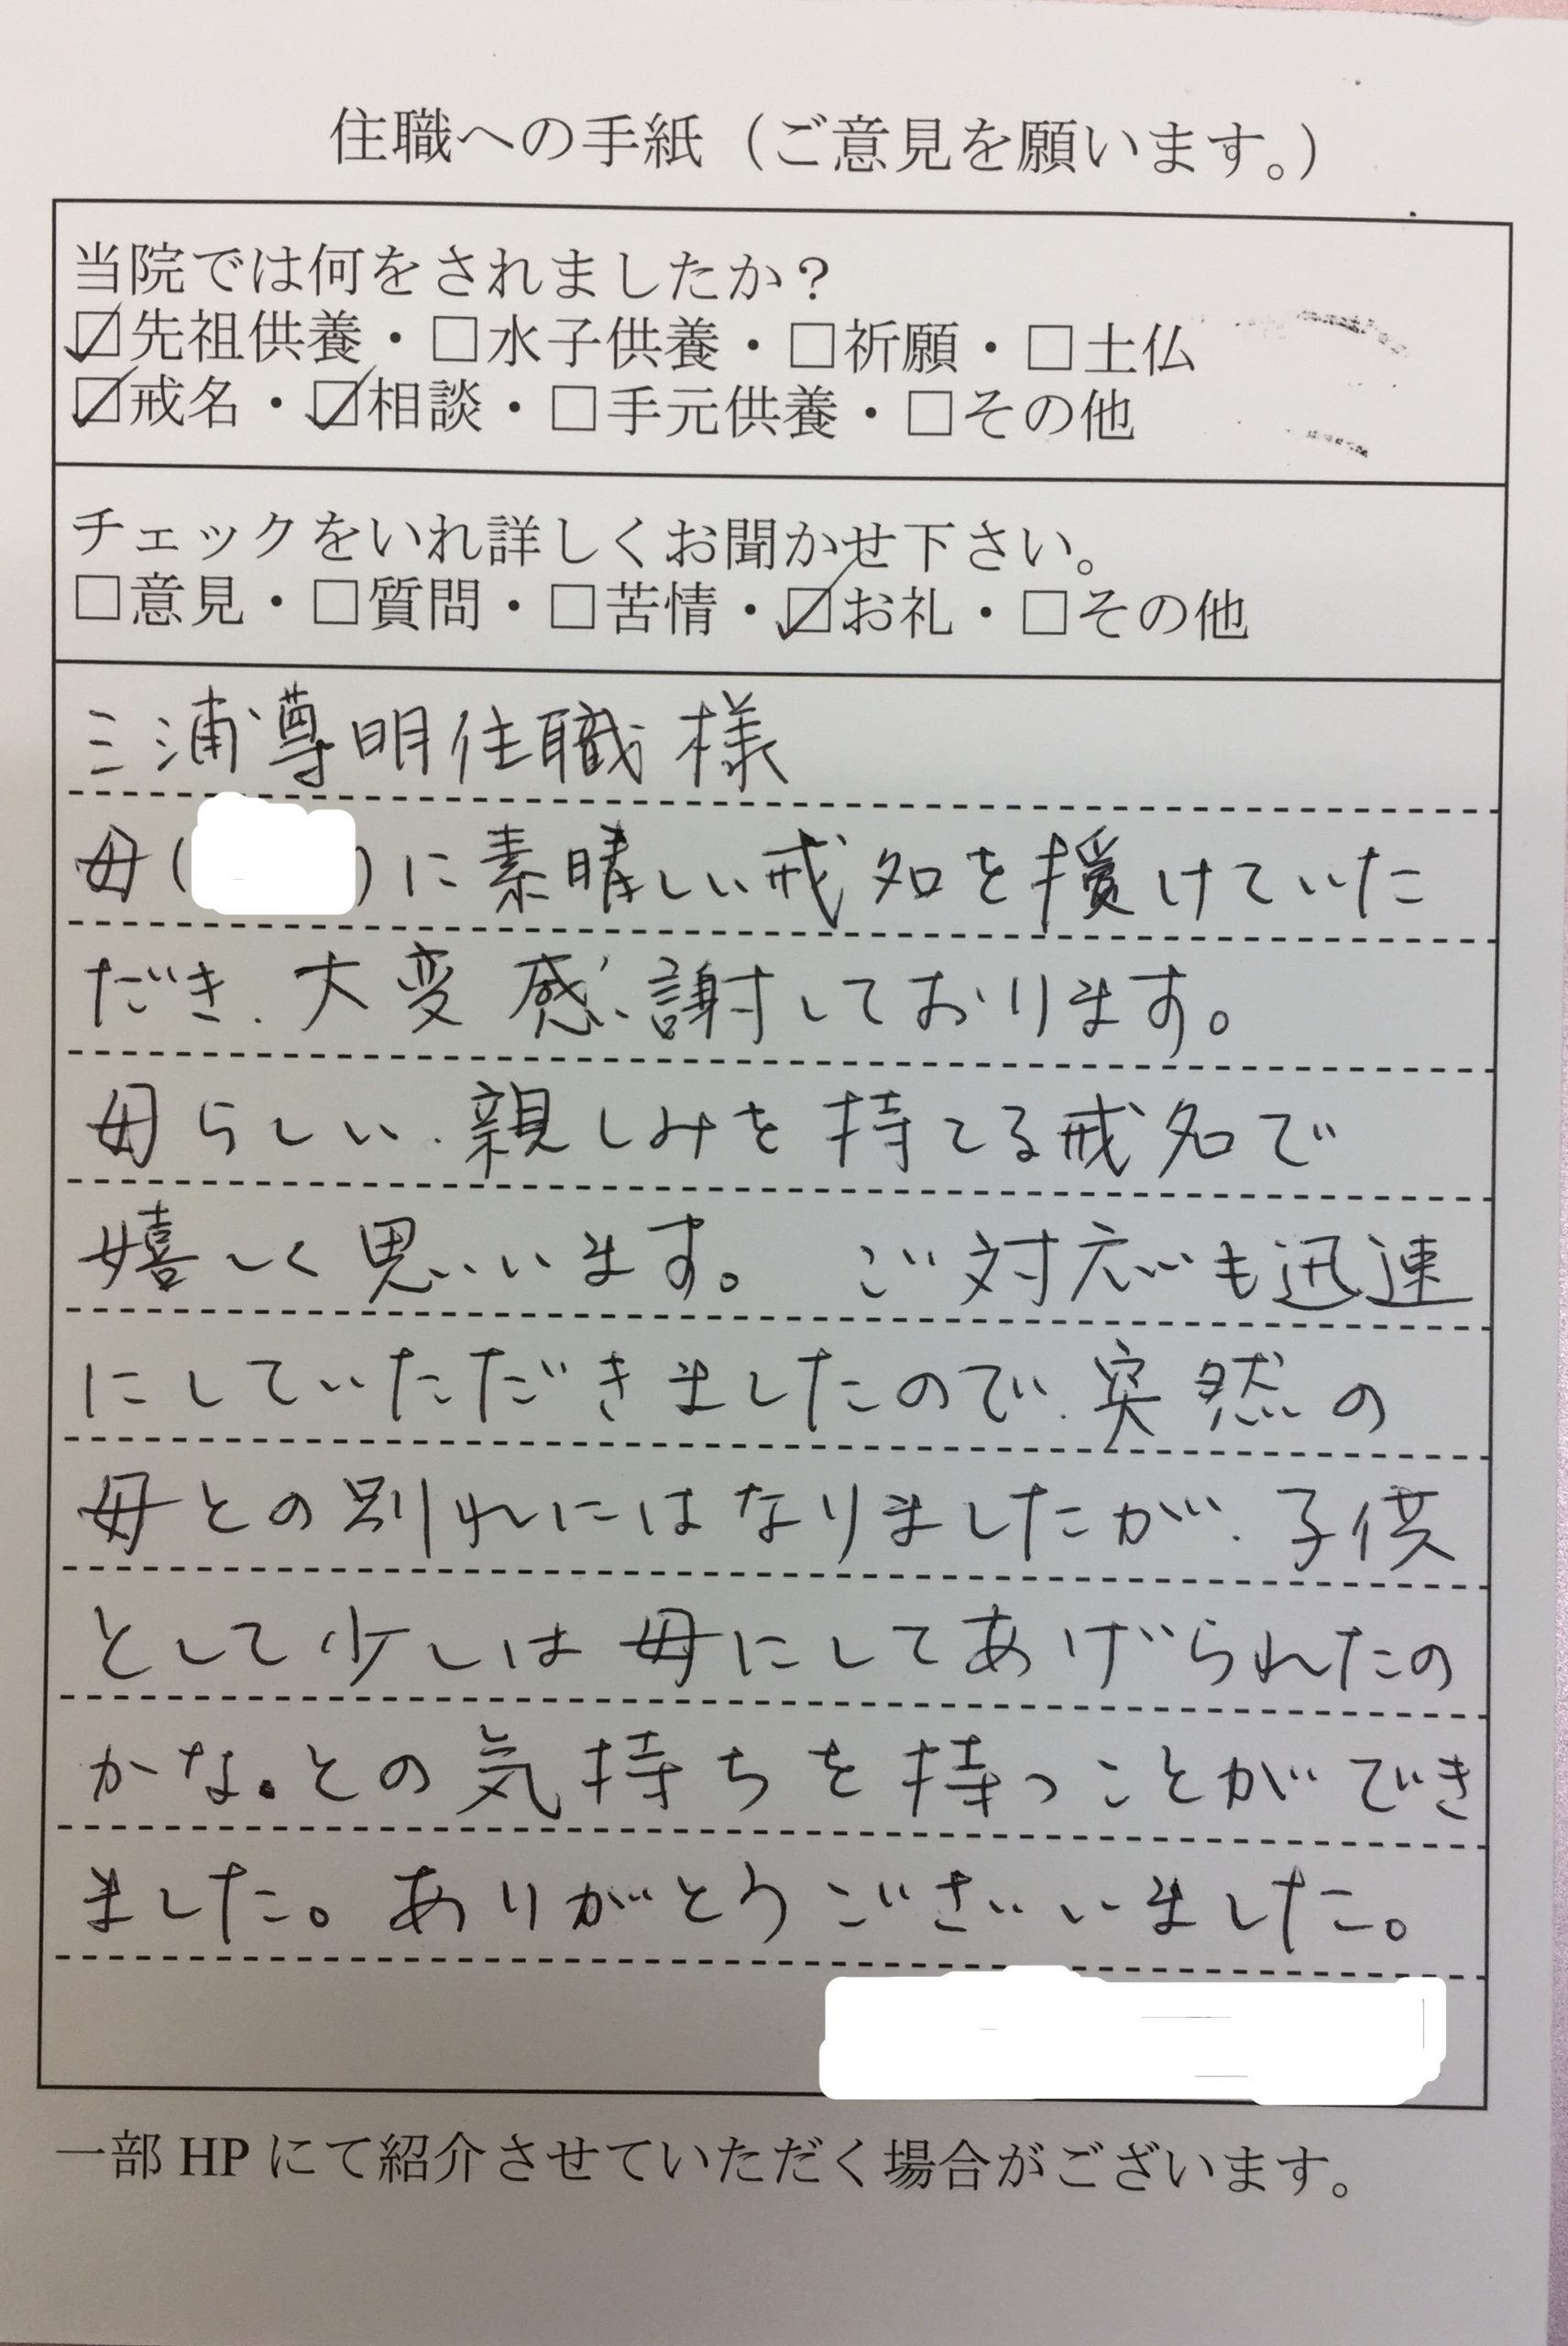 住職への手紙（ご意見を願います。）
当院では何をされましたか？
☑先祖供養・□水子供養・□祈願・□土仏
☑戒名・☑相談・□手元供養・□その他
チェックをいれ詳しくお聞かせ下さい。
□意見・□質問・□苦情・☑お礼・□その他
三浦尊明住職様
母(　)に素晴しい戒名を授けていた
だき、大変感謝しております。
母らしい、親しみを持てる戒名で
嬉しく思います。 ご対応も迅速
にしていただきましたので、突然の
母との別れにはなりましたが、子供
として少しは母にしてあげられたの
かな。との気持ちを持つことができ
ました。ありがとうございました。
一部 HP にて紹介させていただく場合がございます。